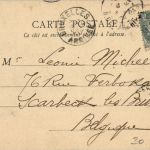 CARTE POSTALE
Ce côté est exclusivement réservé à l'adresse.
M Leonie Michel
76 Rue Verboka
Scarbeck lez Bru
Belgique
30